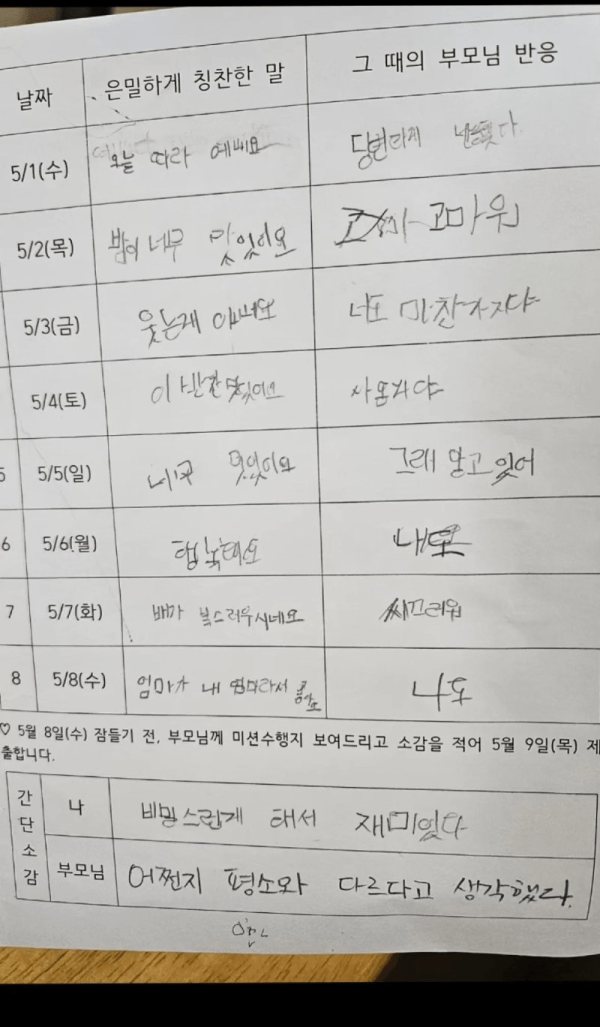 날짜 은밀하게 칭찬한 말 그 때의 부모님 반응
5/1(수) 오늘 따라 예뻐요
5/2(목) 밥이 너무 맛있어요 고마워
5/3(금) 웃는게 이뻐요 너도 마찬가지다
5/4(토) 맛있어요
5 5/5(일) 그래 알고 있어
6 5/6(월) 행복해요
7 5/7(화) 배가 시끄러워
8 5/8(수) 엄마가 내 엄마라서 좋아요 나도
♡ 5월 8일(수) 잠들기 전, 부모님께 미션수행지 보여드리고 소감을 적어 5월 9일(목) 제
출합니다.
간단소감
나 비밀스럽게 해서 재미있다
부모님 어쩐지 평소와 다르다고 생각했다.